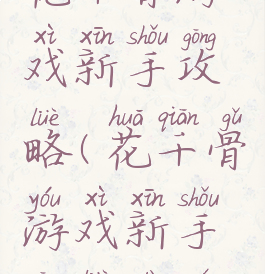 xì xīn shǒu gōng
戏新手攻
lüè huā qiān gǔ
略(花千骨
yóu xì xīn shǒu
游戏新手